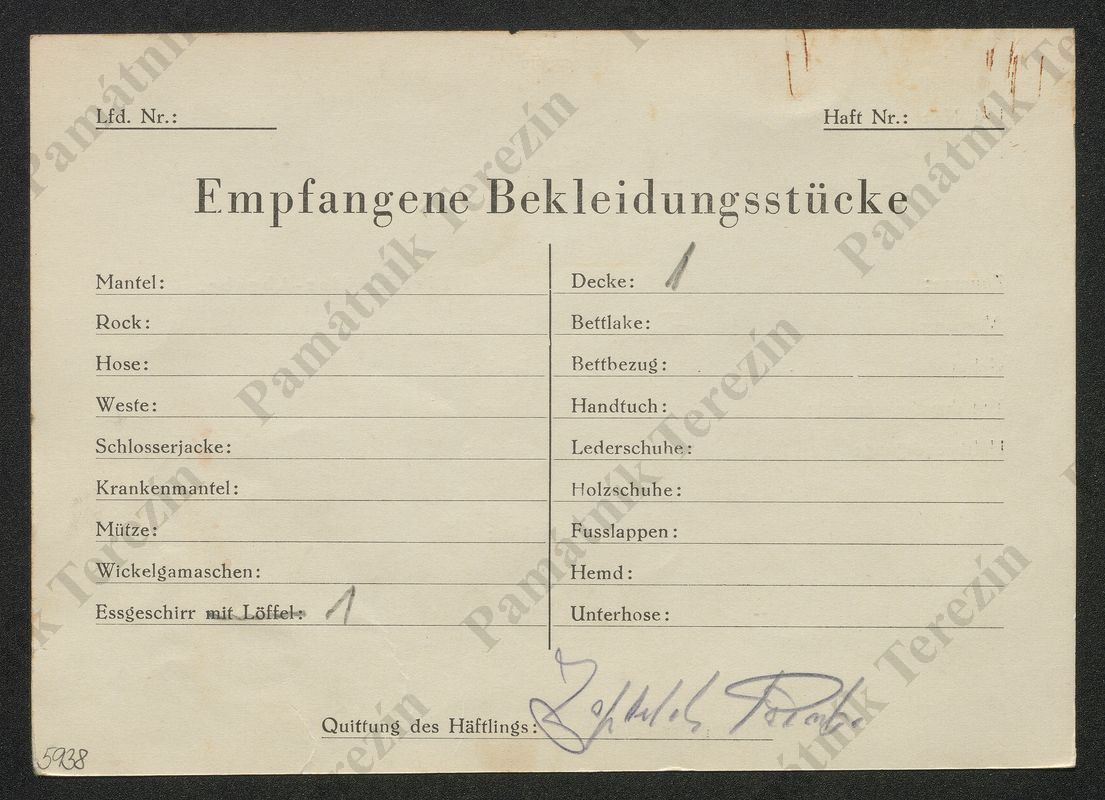 Lfd. Nr.:
Haft Nr.:
Empfangene Bekleidungsstücke
Mantel:
Rock:
Hose:
Weste:
Schlosserjacke:
Krankenmantel:
Mütze:
Wickelgamaschen:
Essgeschirr mit Löffel: 1
Decke: 1
Bettlake:
Bettbezug:
Handtuch:
Lederschuhe:
Holzschuhe:
Fusslappen:
Hemd:
Unterhose:
Quittung des Häftlings:
5938
Památník Terezín